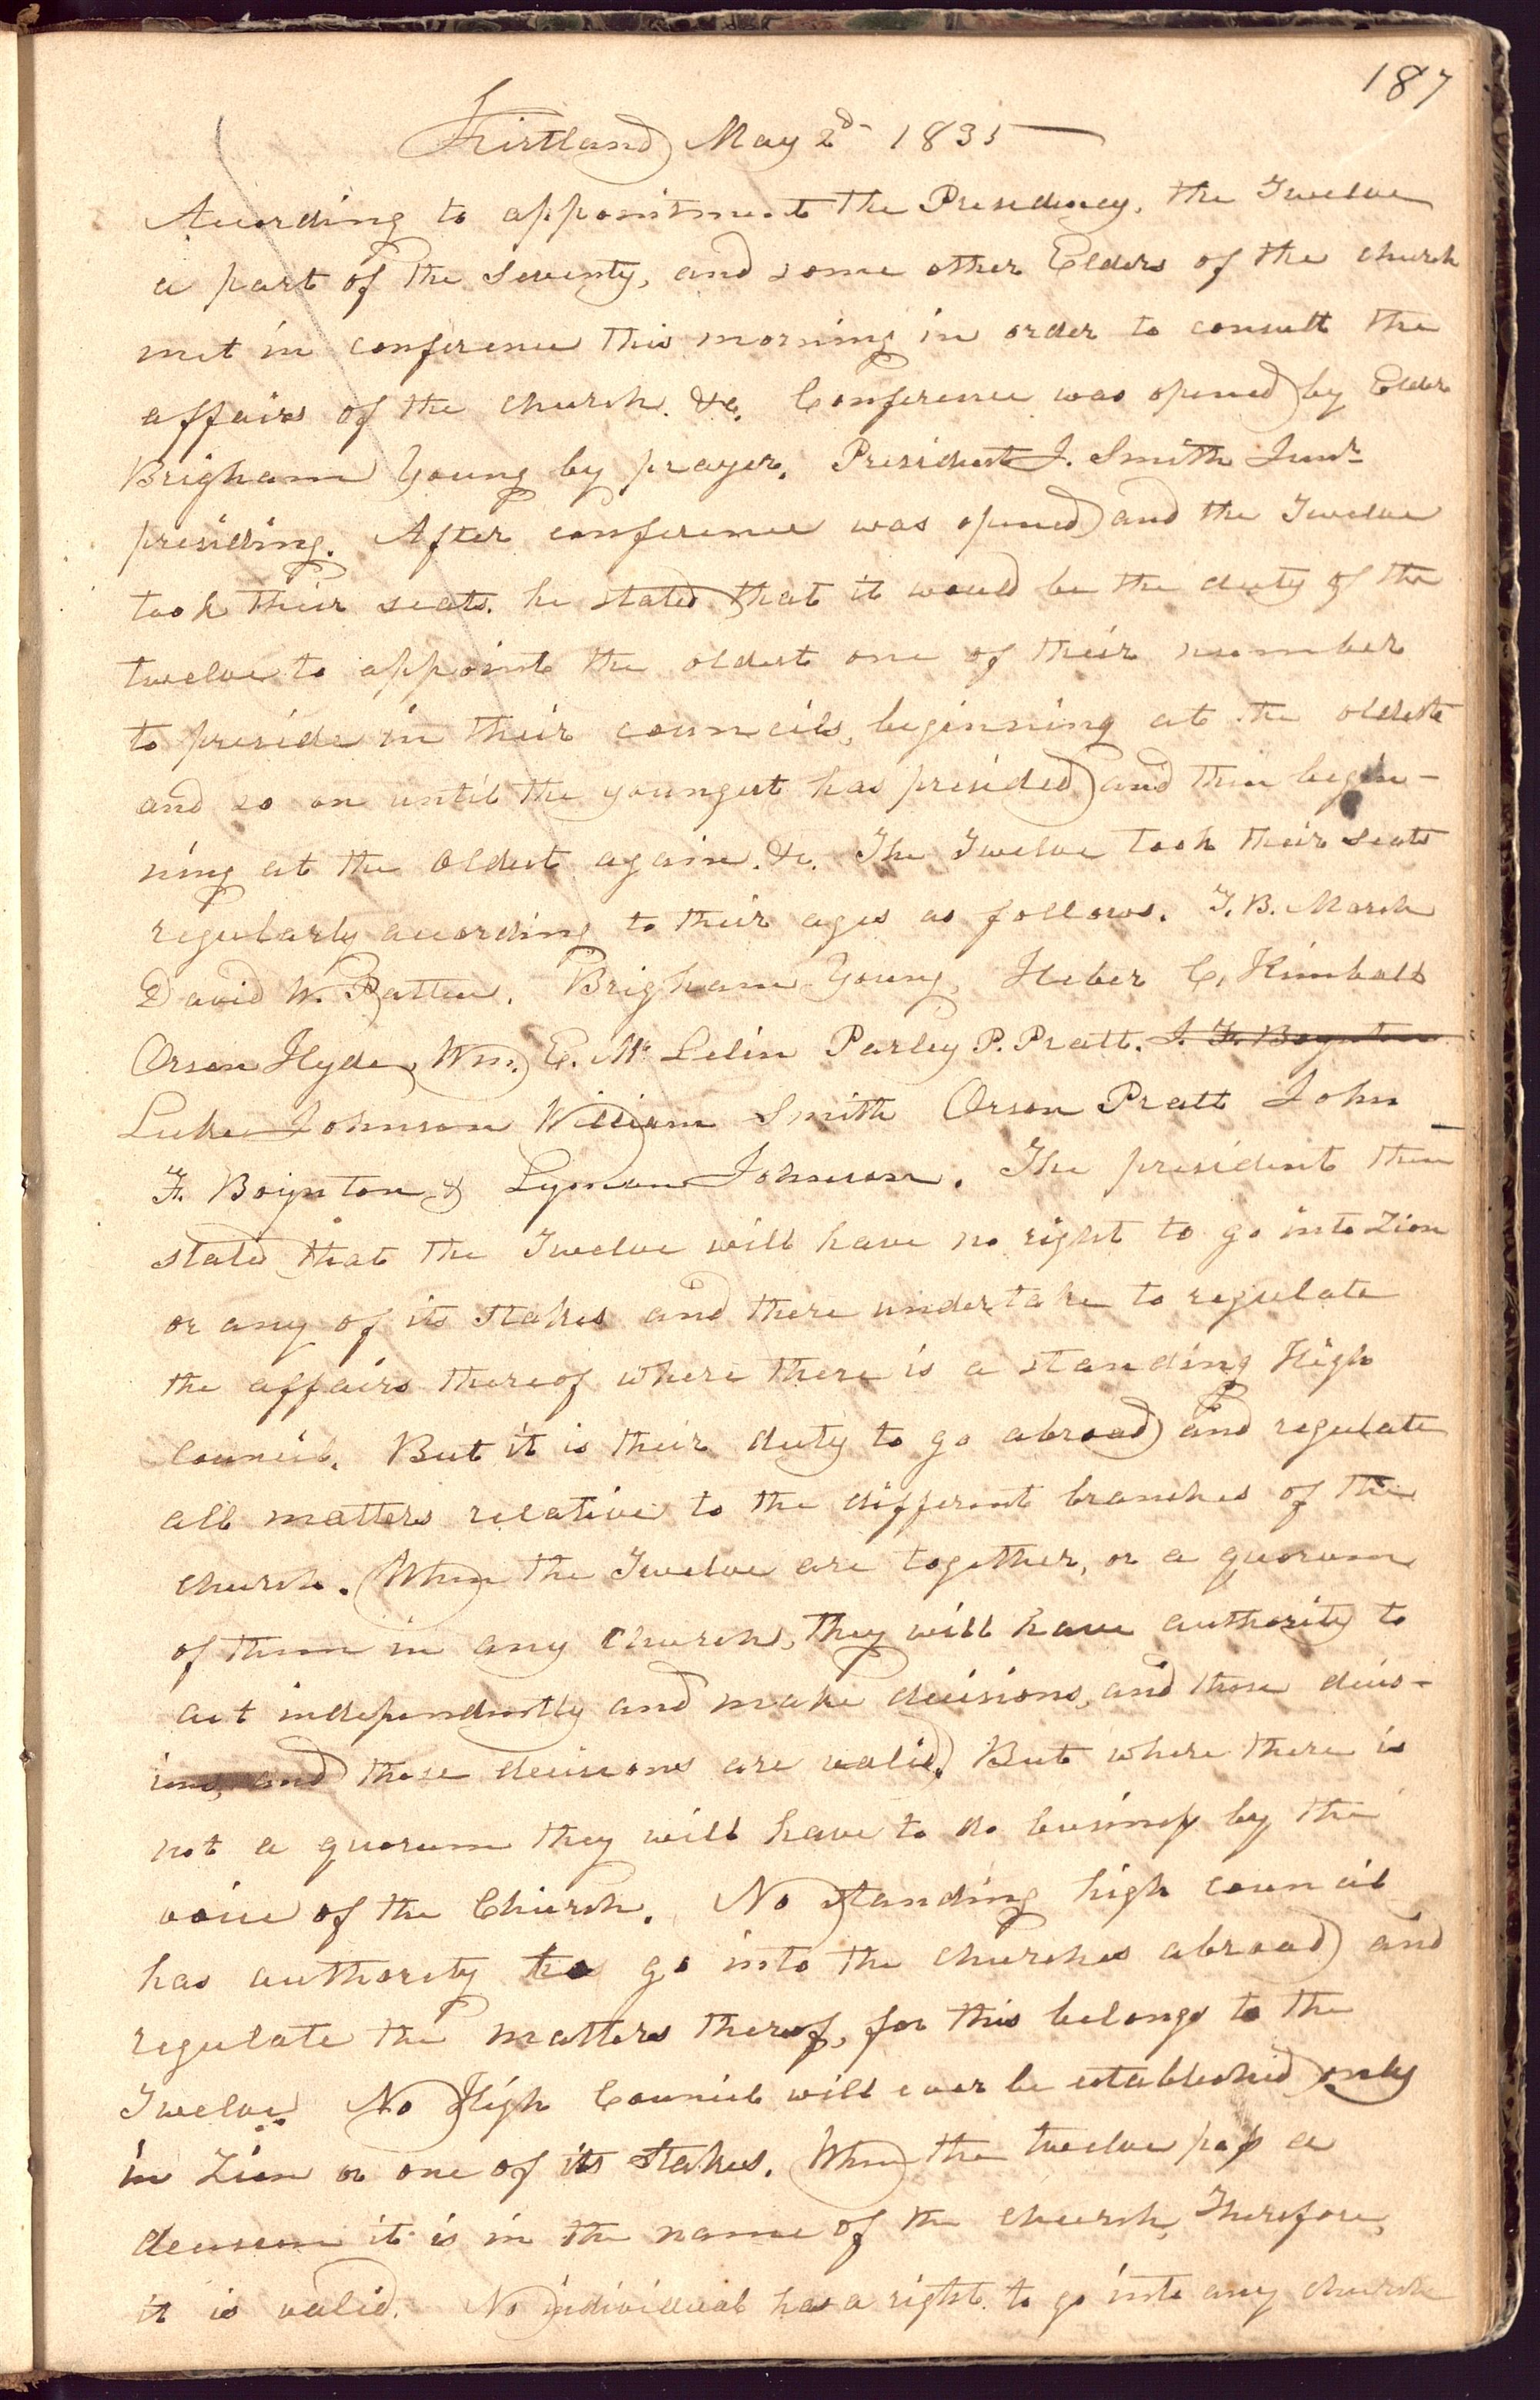 187
Kirtland May 2d 1835
According to appointment the Presidency, the Twelve
a part of the Seventy, and some other Elders of the church
met in conference this morning in order to consult the
affairs of the church. &c. Conference was opened by Elder
Brigham Young by prayer. President J. Smith Junr.
presiding. After conference was opened and the Twelve
took their seats. he stated that it would be the duty of the
twelve to appoint the oldest one of their number
to preside in their councils, beginning at the oldest
and so on until the youngest has presided and then begin-
ning at the oldest again. &c. The Twelve took their seats
regularly according to their ages as follows. T. B. Marsh
David W. Patten. Brigham Young, Heber C. Kimball
Orson Hyde, Wm. E. Mc Lelin Parley P. Pratt. J. F. Boynton
Luke Johnson William Smith Orson Pratt John
F. Boynton & Lyman Johnson. The president then
stated that the Twelve will have no right to go into Zion
or any of its stakes and there undertake to regulate
the affairs thereof where there is a standing High
council. But it is their duty to go abroad and regulate
all matters relative to the different branches of the
church. When the Twelve are together, or a quorum
of them in any church, they will have authority to
act independently and make decisions, and those decis-
ions, and those decisions are valid. But where there is
not a quorum they will have to do business by the
voice of the Church. No standing high council
has authority to go into the churches abroad and
regulate the matters thereof, for this belongs to the
Twelve. No High Council will ever be established only
in Zion or one of its stakes. When the twelve pass a
decision it is in the name of the church, Therefore,
it is valid. No individual has a right to go into any church